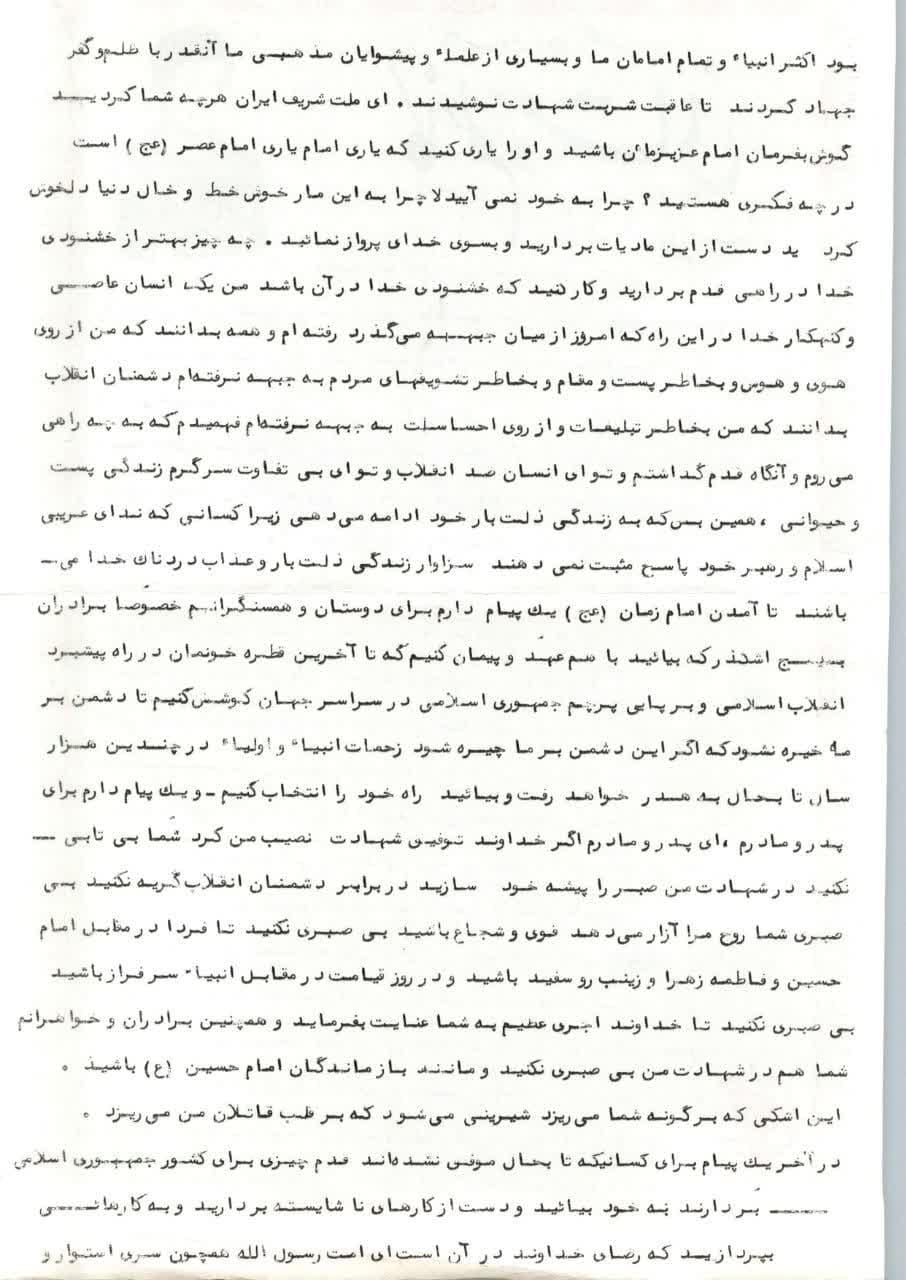 بود اکثر انبیاء و تمام امامان ما و بسیاری از علماء و پیشوایان مذهبی ما آنقدر با ظلم و کفر
جهاد کردند تا عاقبت شربت شهادت نوشیدند . ای ملت شریف ایران هرچه شما کردید
گوش بفرمان امام عزیزمان باشید و او را یاری کنید که یاری امام یاری امام عصر (عج) است
در چه فکری هستید ؟ چرا به خود نمی آیید لا چرا به این مار خوش خط و خال دنیا دلخوش
کرد ید دست از این مادیات بردارید و بسوی خدای پرواز نمائید . چه چیز بهتر از خشنودی
خدا در راهی قدم بردارید و کار کنید که خشنودی خدا در آن باشد من یک انسان عاصی
و گنهکار خدا در این راه که امروز از میان جبهه میگذرد رفته ام و همه بدانند که من از روی
هوی و هوس و بخاطر پست و مقام و بخاطر تشویقهای مردم به جبهه نرفته‌ام دشمنان انقلاب
بدانند که من بخاطر تبلیغات و از روی احساسات به جبهه نرفته‌ام فهمیدم که به چه راهی
می روم و آنگاه قدم گذاشتم و تو ای انسان ضد انقلاب و تو ای بی تفاوت سرگرم زندگی پست
و حیوانی ، همین بس که به زندگی ذلت بار خود ادامه می دهی زیرا کسانی که ندای غریبی
اسلام و رهبر خود پاسخ مثبت نمی دهند سزاوار زندگی ذلت بار و عذاب دردناک خدا می
باشند تا آمدن امام زمان (عج) یک پیام دارم برای دوستان و همسنگرانم خصوصا برادران
بسیج اشکذر که بیائید با هم عهد و پیمان کنیم که تا آخرین قطره خونمان در راه پیشبرد
انقلاب اسلامی و بر پایی پرچم جمهوری اسلامی در سراسر جهان کوشش کنیم تا دشمن بر
ما خیره نشود که اگر این دشمن بر ما چیره شود زحمات انبیاء و اولیاء در چندین هزار
سال تا بحال به هدر خواهد رفت و بیائید راه خود را انتخاب کنیم - و یک پیام دارم برای
پدر و مادرم ، ای پدر و مادرم اگر خداوند توفیق شهادت نصیب من کرد شما بی تابی
نکنید در شهادت من صبر را پیشه خود سازید در برابر دشمنان انقلاب گریه نکنید بی
صبری شما روح مرا آزار می دهد قوی و شجاع باشید بی صبری نکنید تا فردا در مقابل امام
حسین و فاطمه زهرا و زینب رو سفید باشید و در روز قیامت در مقابل انبیاء سرفراز باشید
بی صبری نکنید تا خداوند اجری عظیم به شما عنایت بفرماید و همچنین برادران و خواهرانم
شما هم در شهادت من بی صبری نکنید و مانند بازماندگان امام حسین (ع) باشید .
این اشکی که بر گونه شما می ریزد شیرینی می شود که بر قلب قاتلان من می ریزد .
در آخر یک پیام برای کسانیکه تا بحال موفق نشده‌اند قدم چیزی برای کشور جمهوری اسلامی
بردارند به خود بیائید و دست از کارهای نا شایسته بردارید و به کارهائی
بپردازید که رضای خداوند در آن است ای امت رسول الله همچون سری استوار و